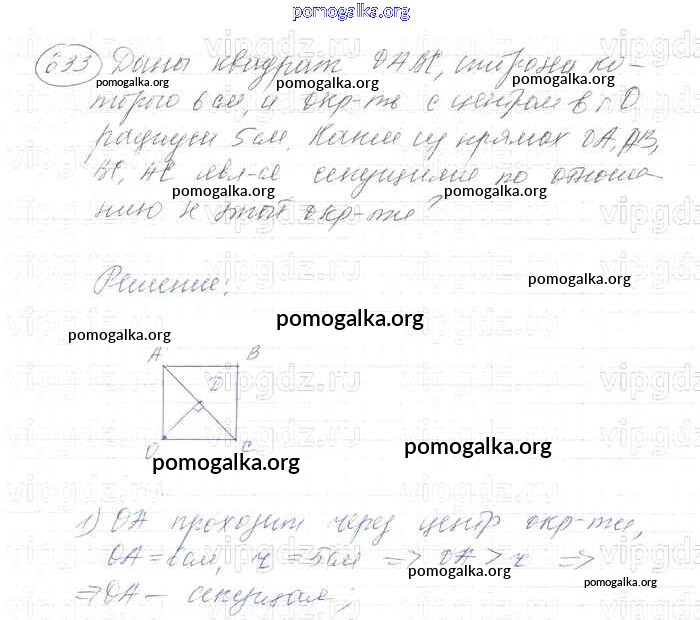 pomogalka.org
633 Даны квадрат OABC, сторона ко-
pomogalka.org pomogalka.org pomogalka.org
торого 6 см, и окр-ть с центром в т. O
радиуси 5 см. Какие из прямых OA, AB,
BC, AC явл-ся секущими по отноше-
pomogalka.org pomogalka.org
нию к этой окр-ти?
vipgdz.ru
Решение:
pomogalka.org
pomogalka.org
pomogalka.org
A B
D
O C
pomogalka.org
pomogalka.org
1) OA проходит через центр окр-ти,
OA = 6 см, r = 5 см => OA > r =>
pomogalka.org pomogalka.org
=> OA – секущая;